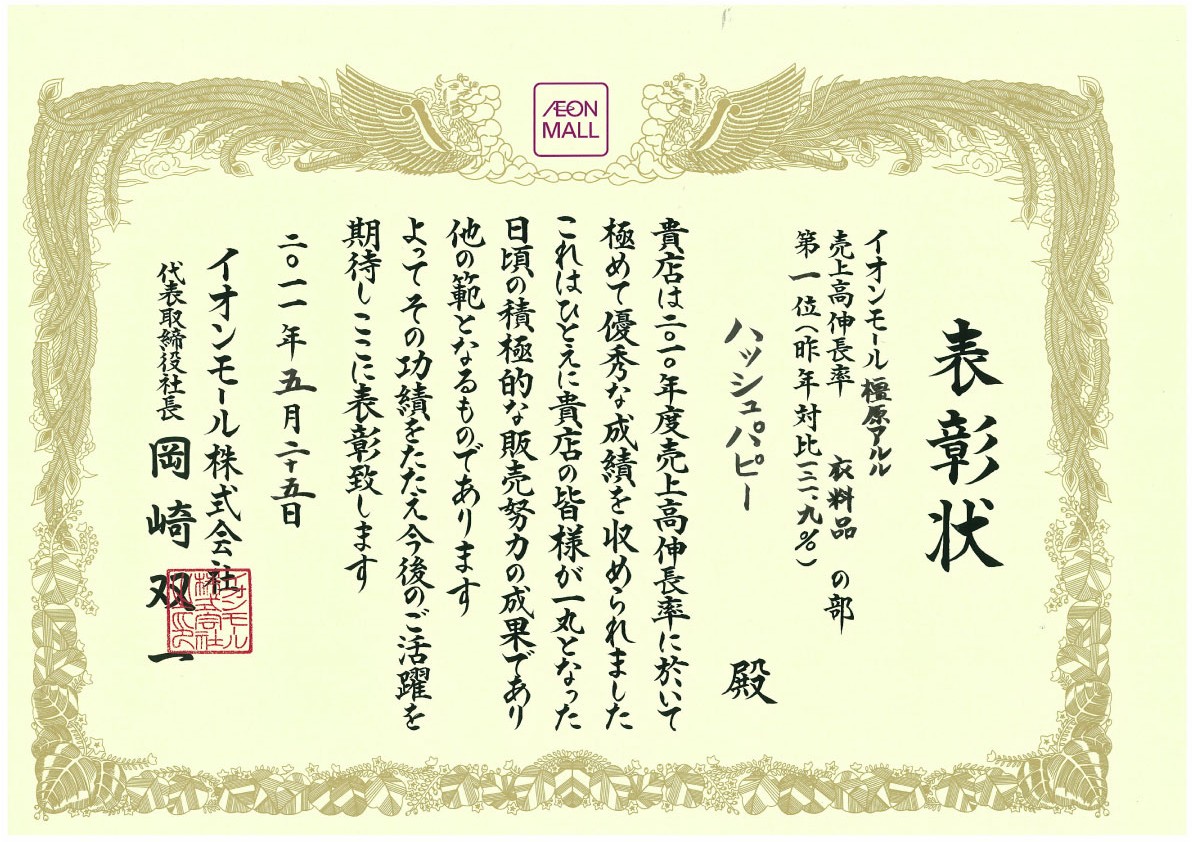 ÆON
MALL
表彰状
イオンモール橿原アルル
売上高伸長率 衣料品 の部
第一位(昨年対比一三一、九%)
ハッシュパピー 殿
貴店は二〇一〇年度売上高伸長率に於いて
極めて優秀な成績を収められました
これはひとえに貴店の皆様が一丸となった
日頃の積極的な販売努力の成果であり
他の範となるものであります
よってその功績をたたえ今後のご活躍を
期待しここに表彰致します
二〇一一年五月二十五日
イオンモール株式会社
代表取締役社長 岡崎双一
イオンモール
株式会社